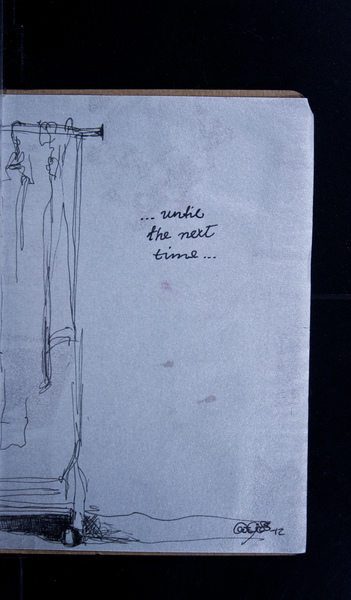 ... until
the next
time ...